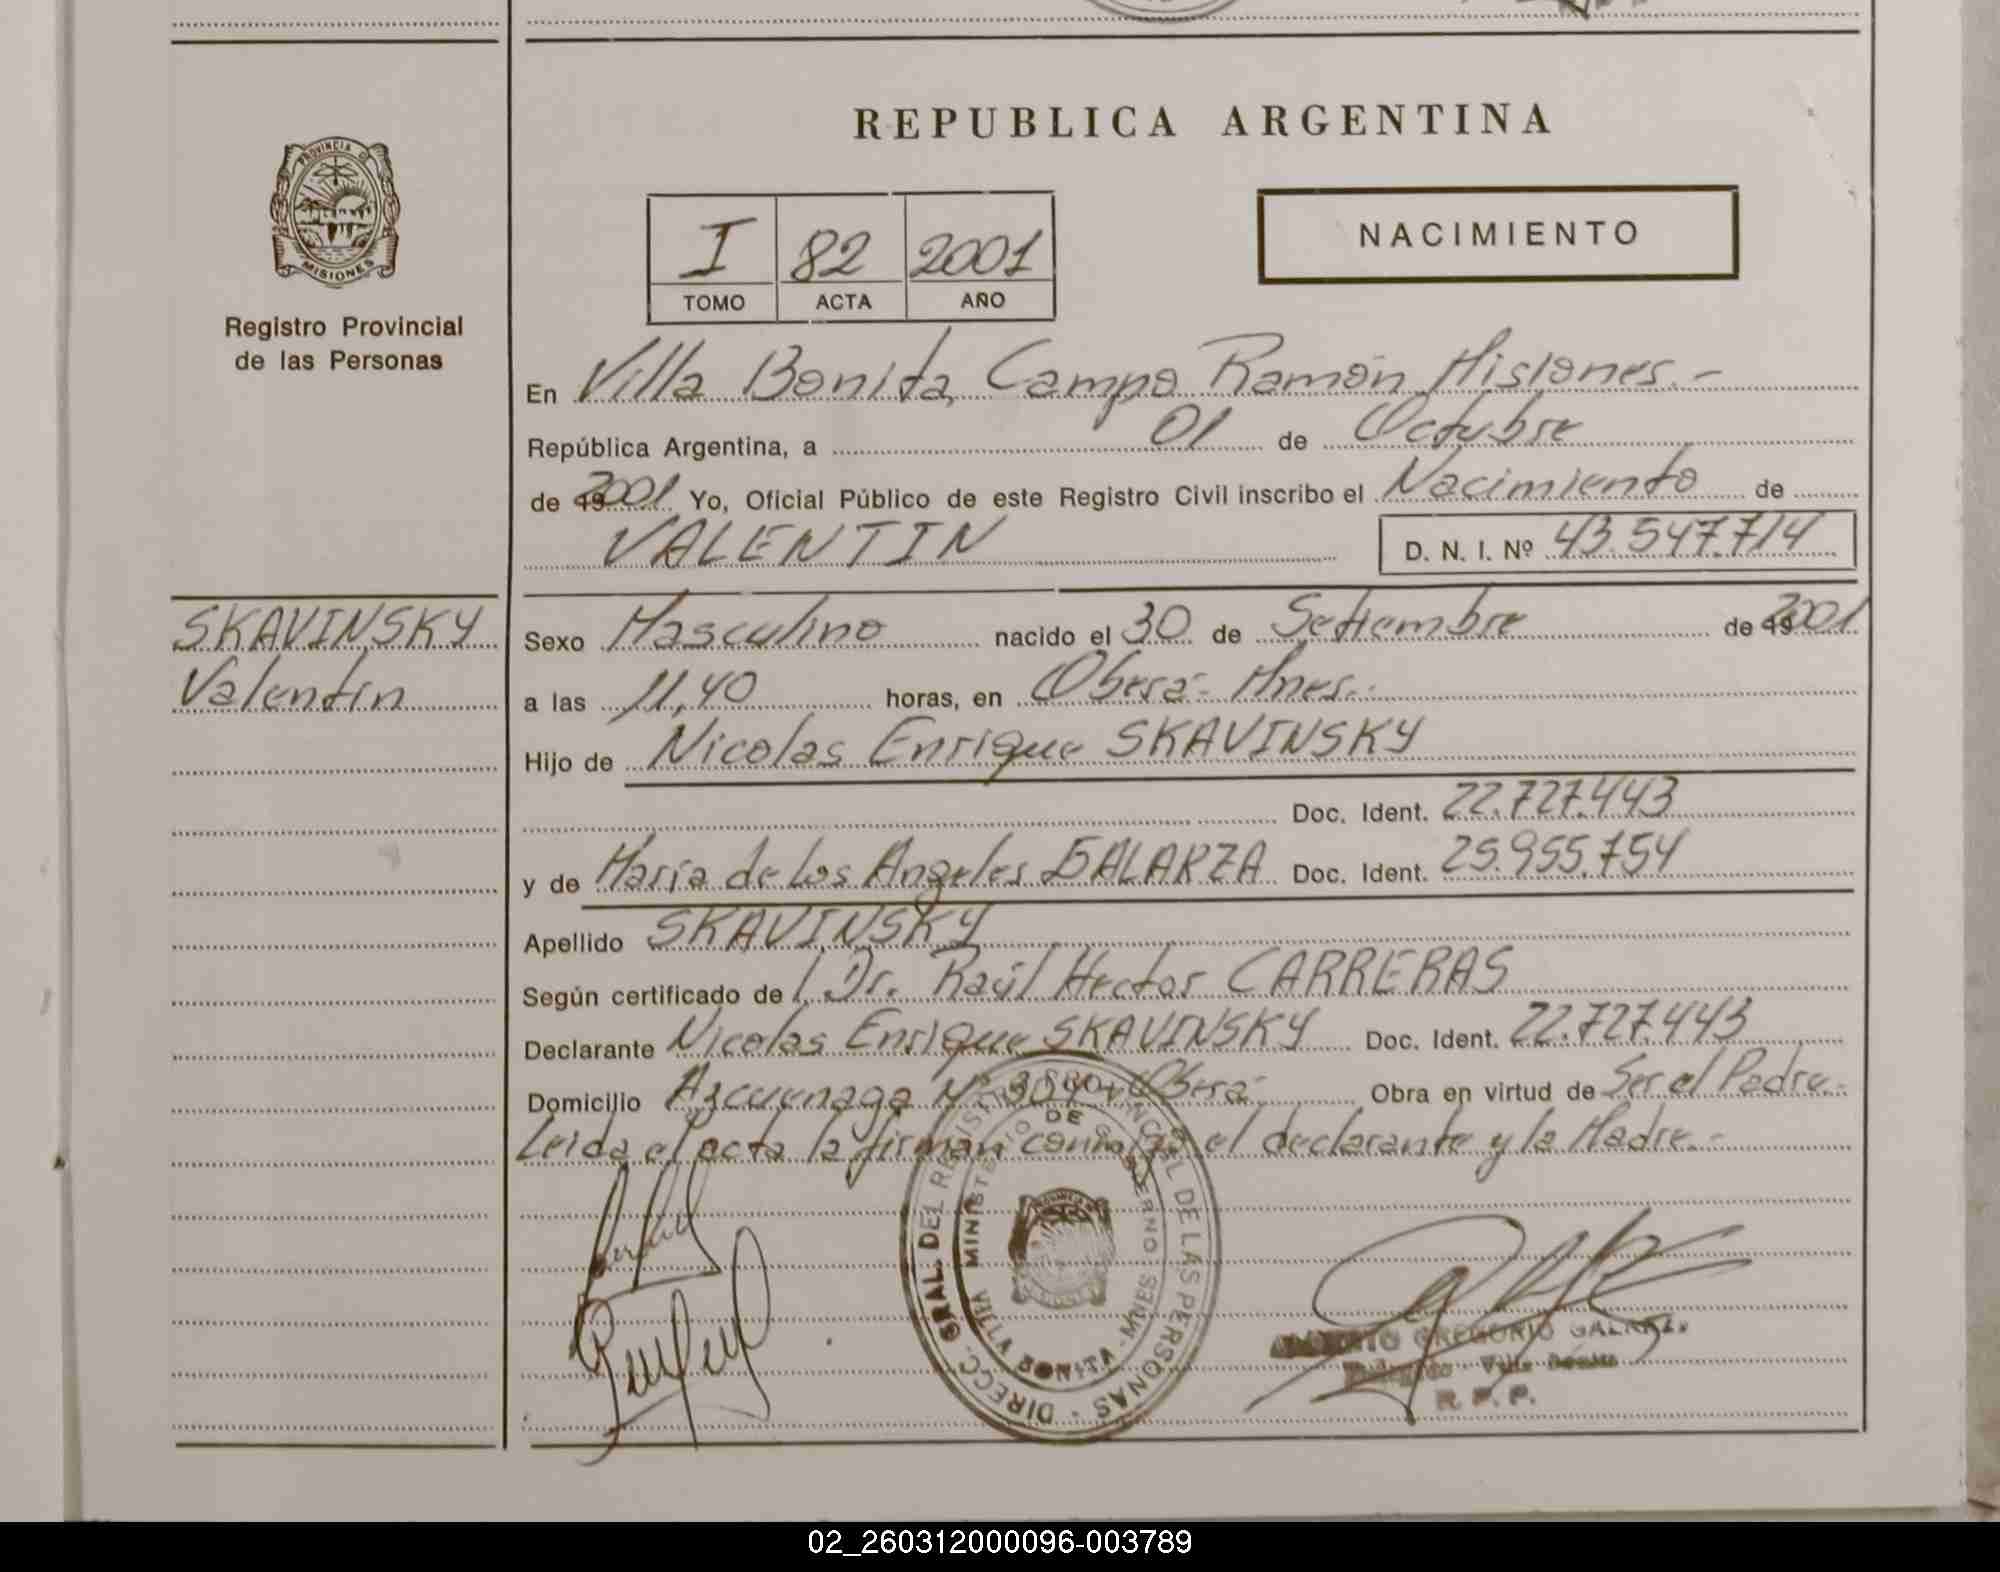 REPUBLICA ARGENTINA
PROVINCIA DE
MISIONES
Registro Provincial
de las Personas
I 82 2001
TOMO ACTA AÑO
NACIMIENTO
En Villa Bonita, Campo Ramón Misiones.-
República Argentina, a 01 de Octubre
de 19 2001 Yo, Oficial Público de este Registro Civil inscribo el Nacimiento de
VALENTIN D. N. I. Nº 43.547.714
SKAVINSKY
Valentín
Sexo Masculino nacido el 30 de Setiembre de 19 2001
a las 11,40 horas, en Oberá- Mnes.-
Hijo de Nicolas Enrique SKAVINSKY
Doc. Ident. 22.727.443
y de María de Los Angeles GALARZA Doc. Ident. 25.955.754
Apellido SKAVINSKY
Según certificado de Dr. Raúl Hector CARRERAS
Declarante Nicolas Enrique SKAVINSKY Doc. Ident. 22.727.443
Domicilio Azcuenaga Nº Oberá- Obra en virtud de Ser el Padre.-
Leida el acta la firman conmigo el declarante y la Madre.-
DIRECC. GRAL. DEL REGISTRO PROVINCIAL DE LAS PERSONAS
MINISTERIO DE GOBIERNO
VILLA BONITA - MNES
GREGORIO GALARZA
Delegado Villa Bonita
R. P. P.
02_260312000096-003789